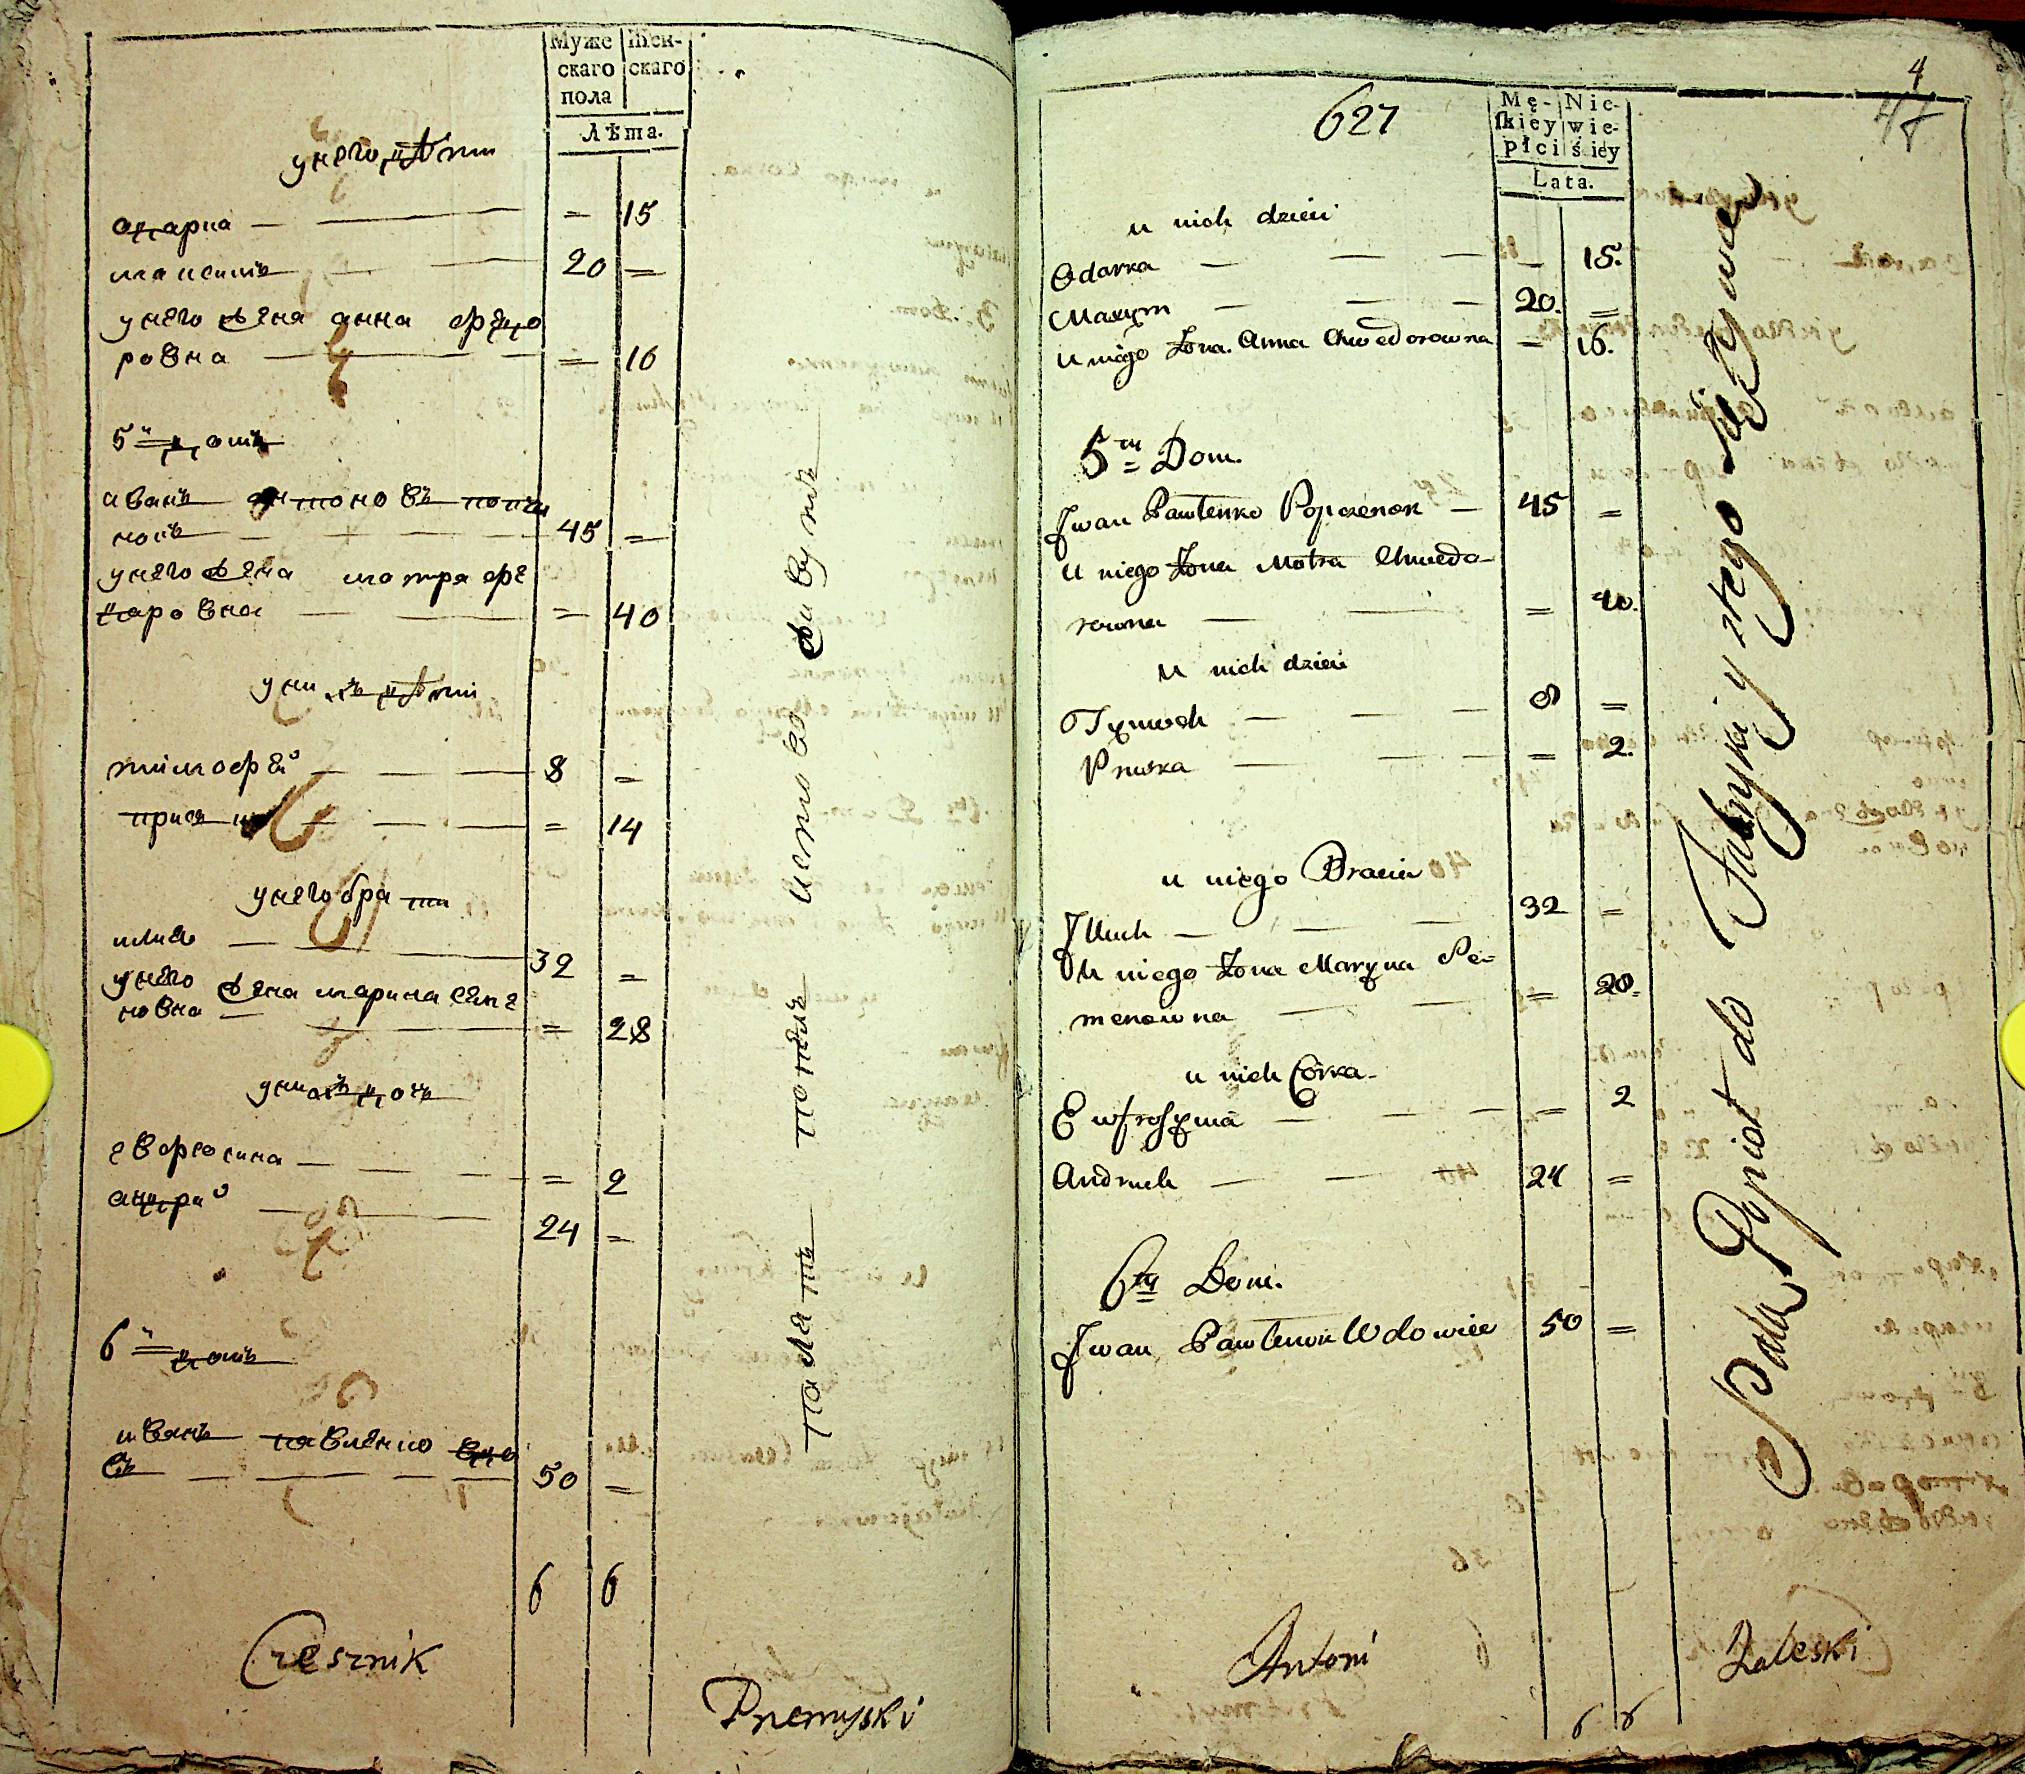 Муже Женскаго скаго
пола
Лѣта.
у него дѣти
Одарка — = 15
Максимъ — 20 =
у него жена анна Фредо
ровна — = 16
5й домъ
иванъ антоновъ попчи
нокъ — 45 =
у него жена мотра Фе
даровна — = 40
у нихъ дѣти
тимофей — 8 =
приська — = 14
у него брати
илия — 32 =
у него жена марина семе
новна — = 28
у нихъ дочь
евфросина — = 2
андрий — 24 =
6й домъ
иванъ павленко вдо
ецъ — 50 =
6 6
Czesznik
Przemyski
4
47
627
Mę- Nie-
ſkiey wie-
płci ściey
Lata.
u nich dzieci
Odarka — — 15.
Maxym — 20. =
u niego Żona Anna Chwedorowna — 16.
5ty Dom.
Jwan Pawlenko Popczenok — 45 =
u niego Żona Motra Chwedo-
rowna — = 40.
u nich dzieci
Tymoch — 8 =
Pryska — = 2.
u niego Bracia
Jlluch — 32 =
u niego Żona Maryna Se-
menowna — = 28.
u nich Córka
Ewfrosyna — = 2
Andruch — 24 =
6ty Dom.
Jwan Pawlenok Wdowiec 50 =
Antoni
Zaleski
6 6